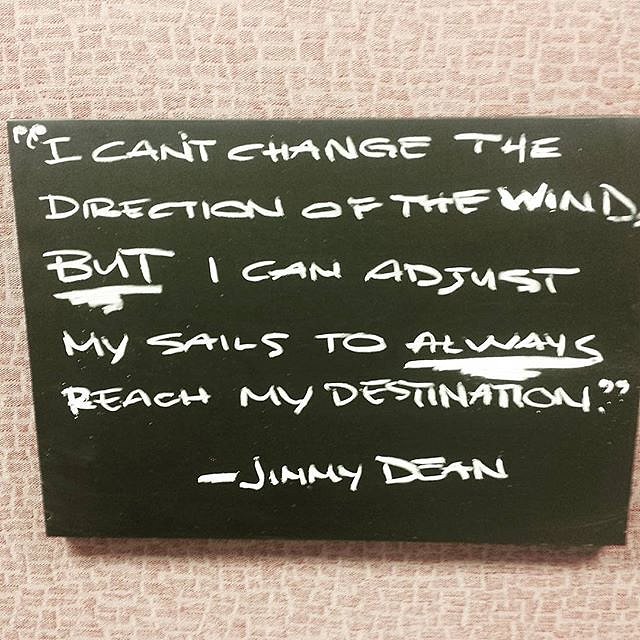 "I CAN'T CHANGE THE
DIRECTION OF THE WIND,
BUT I CAN ADJUST
MY SAILS TO ALWAYS
REACH MY DESTINATION."
-JIMMY DEAN